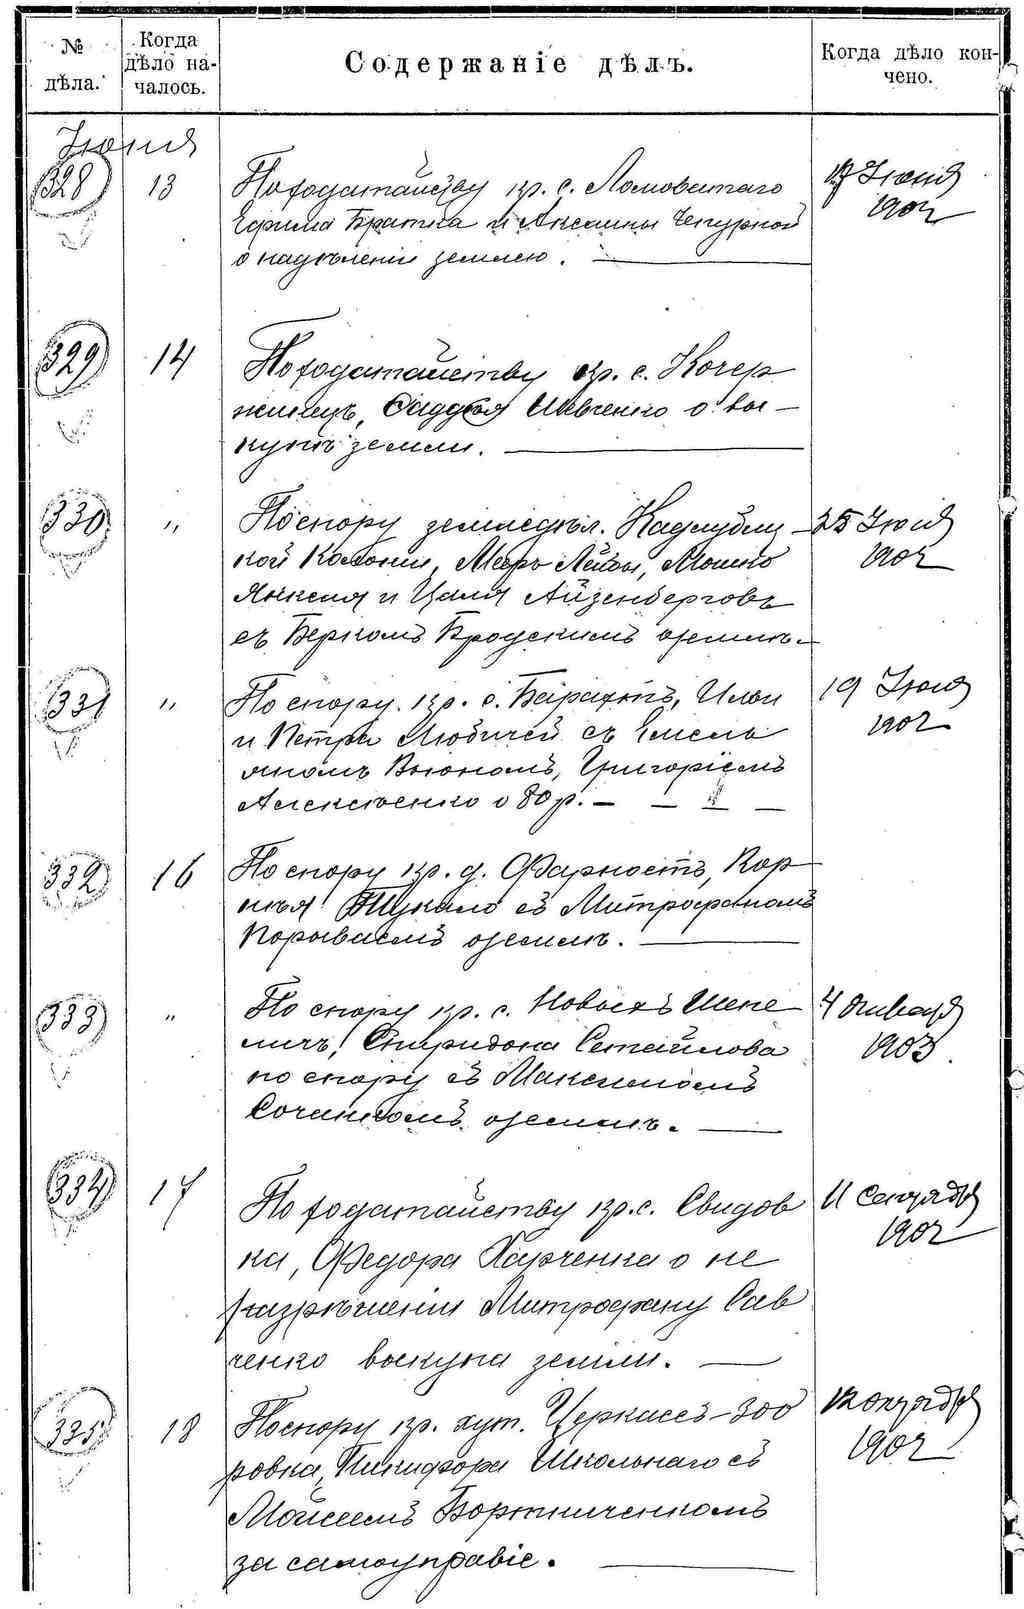 № дѣла.
Когда дѣло на-
чалось.
Содержаніе дѣлъ.
Когда дѣло кон-
чено.
Іюня
328
13
По ходатайству кр. с. Ломоватаго
Ефима Братка и Аксиньи Чепурной
о надѣленіи землею.
17 Іюня
1902
329
14
По ходатайству кр. с. Кочер
жинецъ, Фаддея Шевченко о вы-
купѣ земли.
330
"
По спору земледѣл. Надлубян-
кой Колоніи, Меръ Лейбы, Мошко
Янкеля и Цаля Айзенберговъ
съ Беркомъ Бродскимъ о землѣ.
25 Іюля
1902
331
"
По спору кр. с. Байрахтъ, Ильи
и Петра Любичей съ Емель
яномъ Вьюномъ, Григоріемъ
Алексѣенко о 80 р.
19 Іюля
1902
332
16
По спору кр. д. Фарность, Кор
нѣя Тукало съ Митрофаномъ
Порываемъ о землѣ.
333
"
По спору кр. с. Новыхъ Шепе
личъ, Спиридона Самойлова
по спору съ Максимомъ
Сочинкомъ о землѣ.
4 Января
1903
334
17
По ходатайству кр. с. Свидов
ка, Федора Харченка о не
разрѣшеніи Митрофану Сав
ченко выкупа земли.
11 Сентября
1902
335
18
По спору кр. хут. Церкисъ-Зоо
ровка, Никифора Школьнаго съ
Моисеемъ Бортниченкомъ
за самоуправіе.
12 Октября
1902